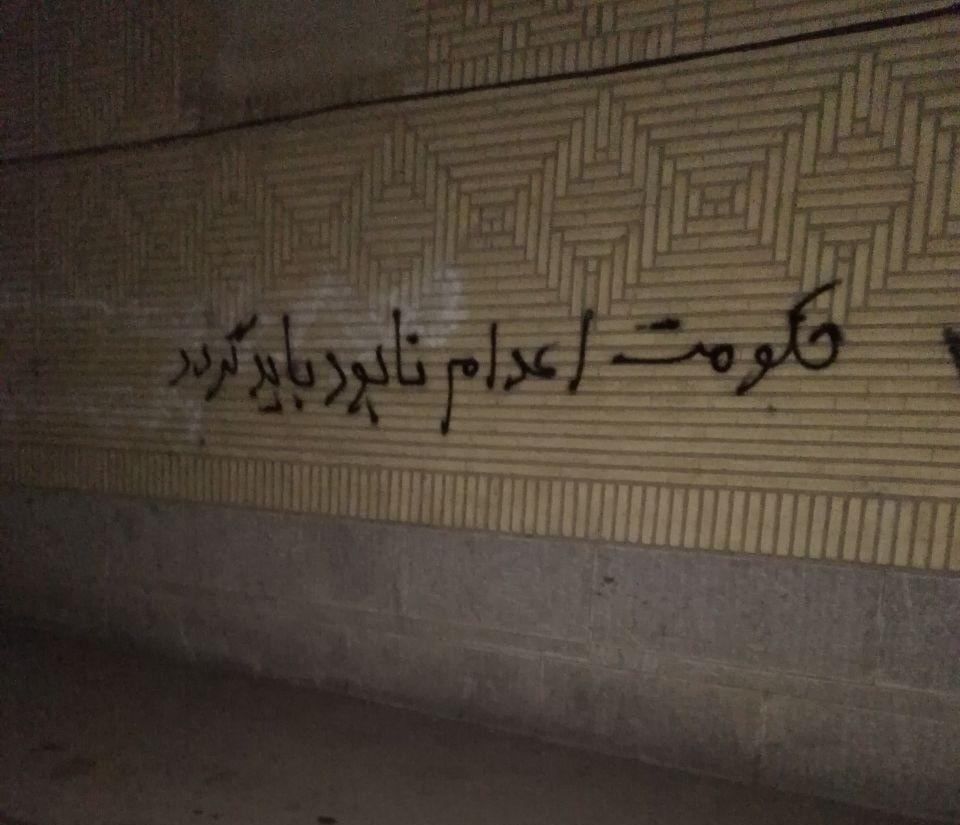 حکومت اعدام نابود باید گردد